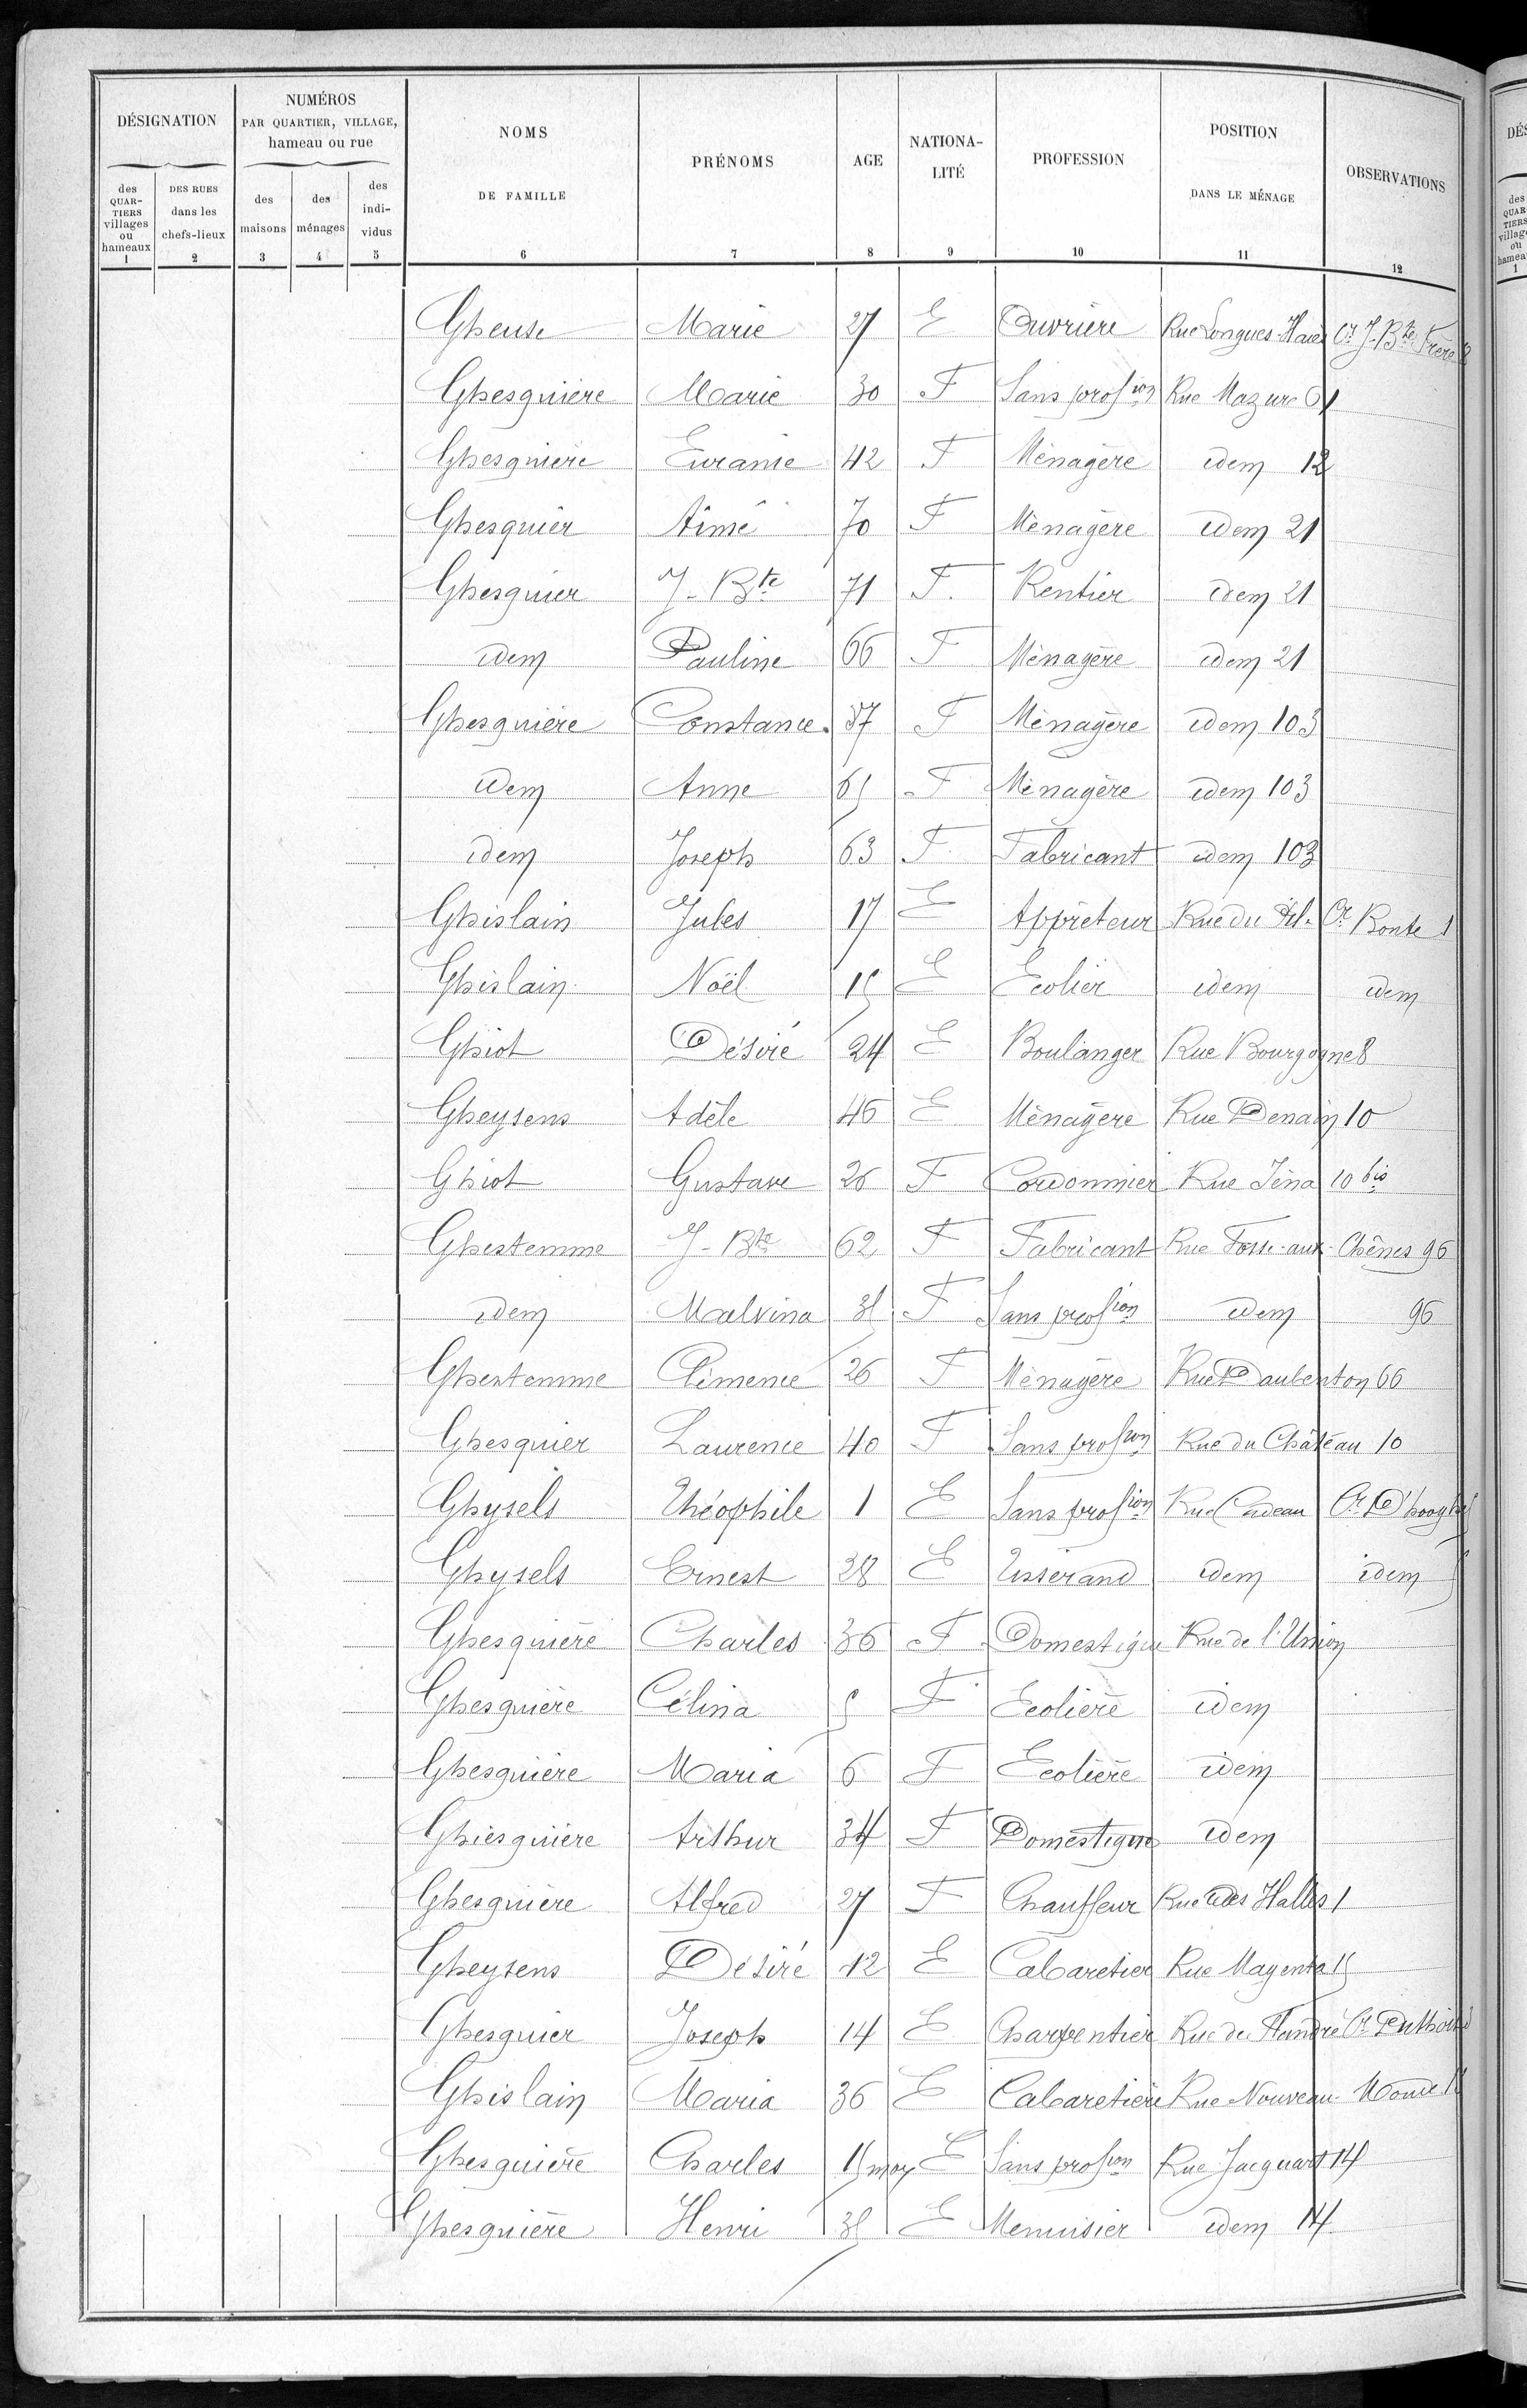 DÉSIGNATION
NUMÉROS
PAR QUARTIER, VILLAGE,
hameau ou rue
NOMS
DE FAMILLE
PRÉNOMS
AGE
NATIONA-
LITÉ
PROFESSION
POSITION
DANS LE MÉNAGE
OBSERVATIONS
des
QUAR-
TIERS
villages
ou
hameaux
DES RUES
dans les
chefs-lieux
des
maisons
des
ménages
des
indi-
vidus
1 2 3 4 5 6 7 8 9 10 11 12
Gheuse Marie 27 E Ouvrière Rue Longues-Haies Cr J-Bte Frère 8
Ghesquière Marie 30 F Sans profion Rue Mazure 61
Ghesquière Euranie 42 F Ménagère idem 12
Ghesquier Aimé 70 F Ménagère idem 21
Ghesquier J-Bte 71 F. Rentier idem 21
idem Pauline 66 F Ménagère idem 21
Ghesquière Constance 57 F Ménagère idem 103
idem Anne 65 F Ménagère idem 103
idem Joseph 63 F Fabricant idem 103
Ghislain Jules 17 E Appréteur Rue du Fil. Cr Bonte 1
Ghislain Noël 15 E Ecolier idem idem
Ghiot Désiré 24 E Boulanger Rue Bourgogne 8
Gheysens Adèle 46 E Ménagère Rue Denain 10
Ghiot Gustave 26 F Cordonnier Rue Iéna 10 bis
Ghestemme J-Bte 62 F Fabricant Rue Fosse-aux-Chênes 96
idem Malvina 35 F Sans profion idem 96
Ghestemme Clémence 26 F Ménagère Rue Daubenton 66
Ghesquier Laurence 40 F Sans profion Rue du Château 10
Ghysels Théophile 1 E Sans profion Rue Cadeau Cr D'hooghe 5
Ghysels Ernest 28 E Tisserand idem idem 5
Ghesquière Charles 36 F Domestique Rue de l'Union
Ghesquière Célina 5 F Ecolière idem
Ghesquière Maria 6 F Ecolière idem
Ghiesquière Arthur 34 F Domestique idem
Ghesquière Alfred 27 F Chauffeur Rue des Halles 1
Gheysens Désiré 42 E Cabaretier Rue Magenta 15
Ghesquier Joseph 14 E Charpentier Rue de Flandre Cr
Ghislain Maria 36 E Cabaretière Rue Nouveau-Monde
Ghesquière Charles 15 moy E Sans profion Rue Jacquart 14
Ghesquière Henri 35 E Menuisier idem 14
DÉS
des
QUAR
TIERS
village
ou
hamea
1